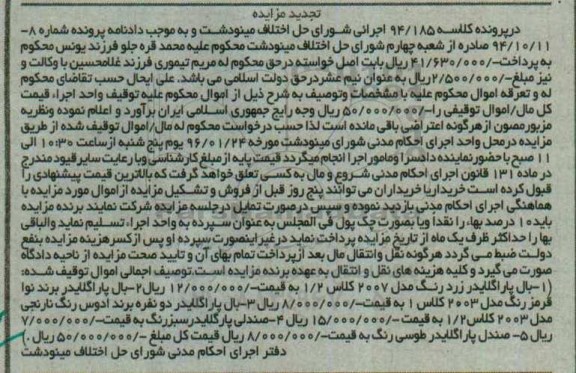 تجدید مزایده
درپرونده کلاسه ۹۴/۱۸۵ اجرائی شورای حل اختلاف مینودشت و به موجب دادنامه پرونده شماره ۸-
۹۴/۱۰/۱۱ صادره از شعبه چهارم شورای حل اختلاف مینودشت محکوم علیه محمد قره جلو فرزند یونس محکوم
به پرداخت-/۴۱/۶۳۰/۰۰۰ ریال بابت اصل خواسته درحق محکوم له مریم تیموری فرزند غلامحسین با وکالت و
نیز مبلغ-/۲/۵۰۰/۰۰۰ریال به عنوان نیم عشردرحق دولت اسلامی می باشد. علی ایحال حسب تقاضای محکوم
له و تعرفه اموال محکوم علیه با مشخصات وتوصیف به شرح ذیل از اموال محکوم علیه توقیف واحد اجرا، قیمت
کل مال/اموال توقیفی را-/۵۰/۰۰۰/۰۰۰ریال وجه رایج جمهوری اسلامی ایران برآورد و اعلام نموده ونظریه
مزبورمصون ازهرگونه اعتراضی باقی مانده است لذا حسب درخواست محکوم له مال/اموال توقیف شده از طریق
مزایده درمحل واحد اجرای احکام مدنی شورای مینودشت مورخه ۹۶/۰۱/۲۴ یوم پنج شنبه ازساعت ۱۰:۳۰ الی
۱۱ صبح باحضورنماینده دادسرا ومامور اجرا انجام میگردد قیمت پایه از مبلغ کارشناسی وبا رعایت سایر قیود مندرج
در ماده ۱۳۱ قانون اجرای احکام مدنی شروع و مال به کسی تعلق خواهد گرفت که بالاترین قیمت پیشنهادی را
قبول کرده است خریداریا خریداران می توانند پنج روز قبل از فروش و تشکیل مزایده از اموال مورد مزایده با
هماهنگی اجرای احکام مدنی بازدید نموده و سپس درصورت تمایل درجلسه مزایده شرکت نمایند برنده مزایده
باید۱۰ درصد بها، را نقدا ویا بصورت چک پول فی المجلس به عنوان سپرده به واحد اجراء تسلیم نماید والباقی
بها را حداکثر ظرف یک ماه از تاریخ مزایده پرداخت نماید درغیراینصورت سپرده او پس ازکسرهزینه مزایده بنفع
دولت ضبط می گردد هرگونه نقل وانتقال مال بعد ازپرداخت تمام بهای آن و تایید صحت مزایده از ناحیه دادگاه
صورت می گیرد و کلیه هزینه های نقل و انتقال به عهده برنده مزایده است.توصیف اجمالی اموال توقیف شده:
(۱-بال پاراگلایدر زرد رنگ مدل ۲۰۰۷ کلاس ۱/۲ به قیمت-/۱۲/۰۰۰/۰۰۰ ریال۲-بال پاراگلایدر برند نوا
قرمز رنگ مدل ۲۰۰۳ کلاس ۱ به قیمت-/۸/۰۰۰/۰۰۰ ریال ۳-بال پاراگلایدر دو نفره برند ادوس رنگ نارنجی
مدل ۲۰۰۳ کلاس۱/۲ به قیمت -/۱۵/۰۰۰/۰۰۰ ریال ۴-صندلی پارگلایدرسبزرنگ به قیمت-/۷/۰۰۰/۰۰۰
ریال ۵- صندل پاراگلایدر طوسی رنگ به قیمت-/۸/۰۰۰/۰۰۰ ریال قیمت کل مبلغ -/۵۰/۰۰۰/۰۰۰ ریال.)
دفتر اجرای احکام مدنی شورای حل اختلاف مینودشت